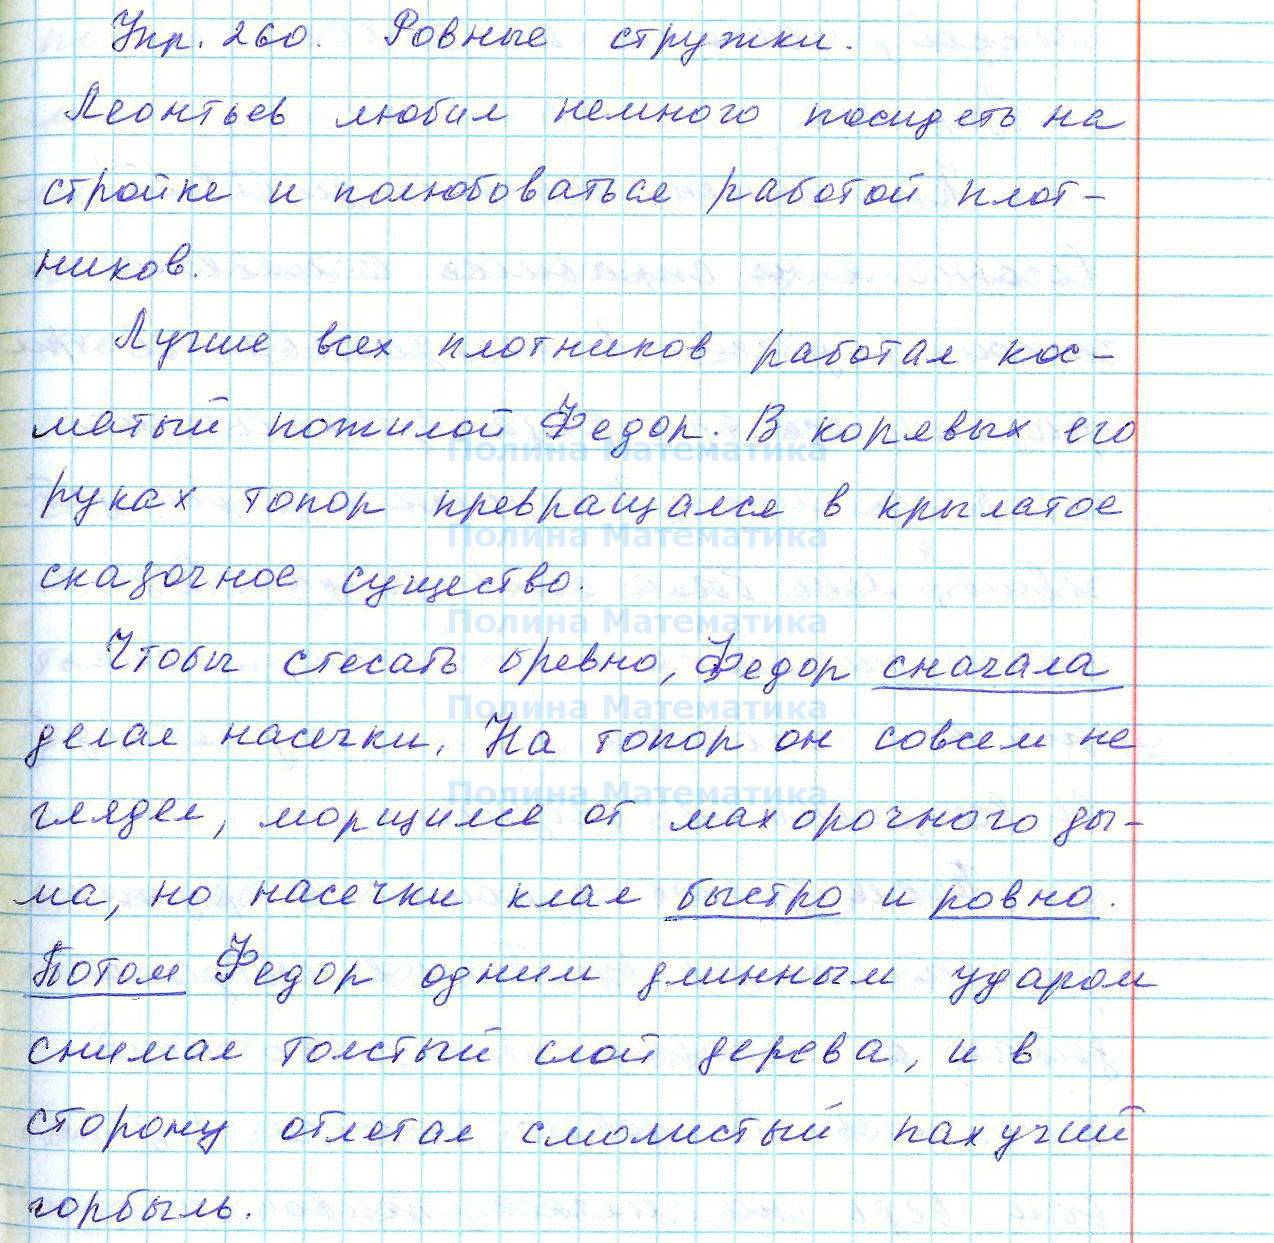 Упр. 260. Ровные стружки.
Леонтьев любил немного посидеть на
стройке и полюбоваться работой плот-
ников.
Лучше всех плотников работал кос-
матый пожилой Федор. В корявых его
Полина Математика
руках топор превращался в крылатое
Полина Математика
сказочное существо.
Полина Математика
Чтобы стесать бревно, Федор сначала
Полина Математика
делал насечки. На топор он совсем не
Полина Математика
глядел, морщился от махорочного ды-
ма, но насечки клал быстро и ровно.
Потом Федор одним длинным ударом
снимал толстый слой дерева, и в
сторону отлетал смолистый пахучий
горбыль.